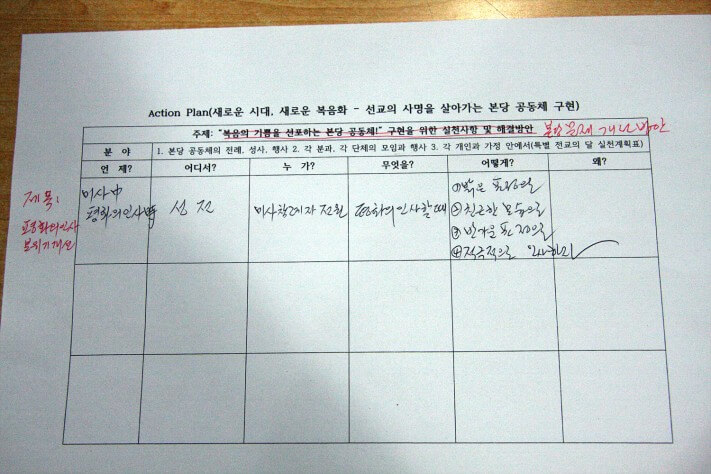 Action Plan(새로운 시대, 새로운 복음화 - 선교의 사명을 살아가는 본당 공동체 구현)
주제: "복음의 기쁨을 선포하는 본당 공동체!" 구현을 위한 실천사항 및 해결방안
본당 문제 개선 방안
분 야 1. 본당 공동체의 전례, 성사, 행사 2. 각 분과, 각 단체의 모임과 행사 3. 각 개인과 가정 안에서(특별 전교의 달 실천계획표)
언 제? 어디서? 누 가? 무엇을? 어떻게? 왜?
제목:
평화의 인사
분위기 개선
미사中
평화의 인사때
성전
미사참례자 전원
평화의 인사할 때
①밝은 표정으로
②친근한 모습으로
③반가운 표정으로
④적극적으로 인사하기